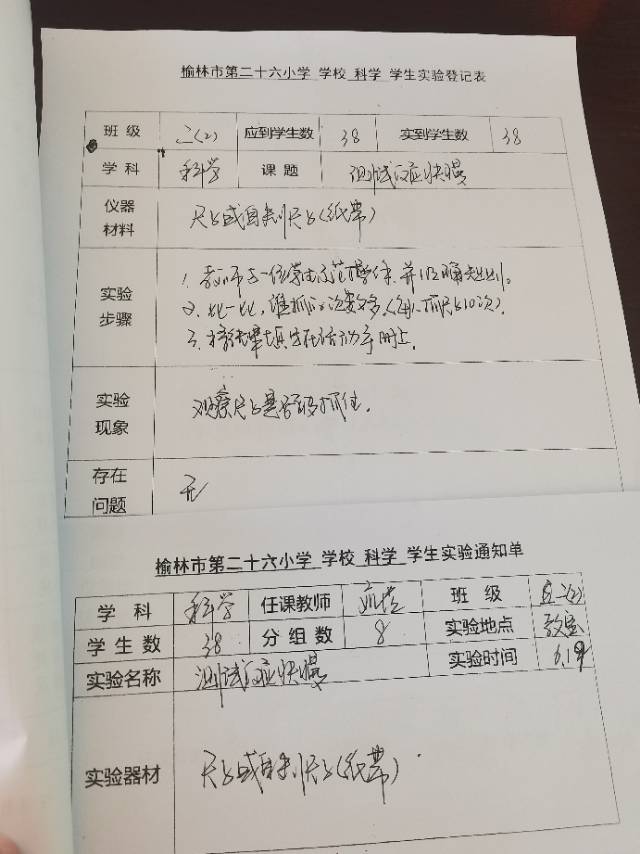 榆林市第二十六小学 学校 科学 学生实验登记表
班 级 二(2) 应到学生数 38 实到学生数 38
学 科 科学 课 题 测试反应快慢
仪器
材料
尺子或自制尺子(纸带)
实验
步骤
1. 教师与一位学生示范
2. 比一比,谁抓的次数多,(每人抓尺子10次).
3. 将结果填写在活动手册上.
实验
现象
观察尺子是否能够抓住.
存在
问题
无
榆林市第二十六小学 学校 科学 学生实验通知单
学 科 科学 任课教师 班 级
学 生 数 38 分 组 数 8 实验地点 教室
实验名称 测试反应快慢 实验时间
实验器材 尺子或自制尺子(纸带)